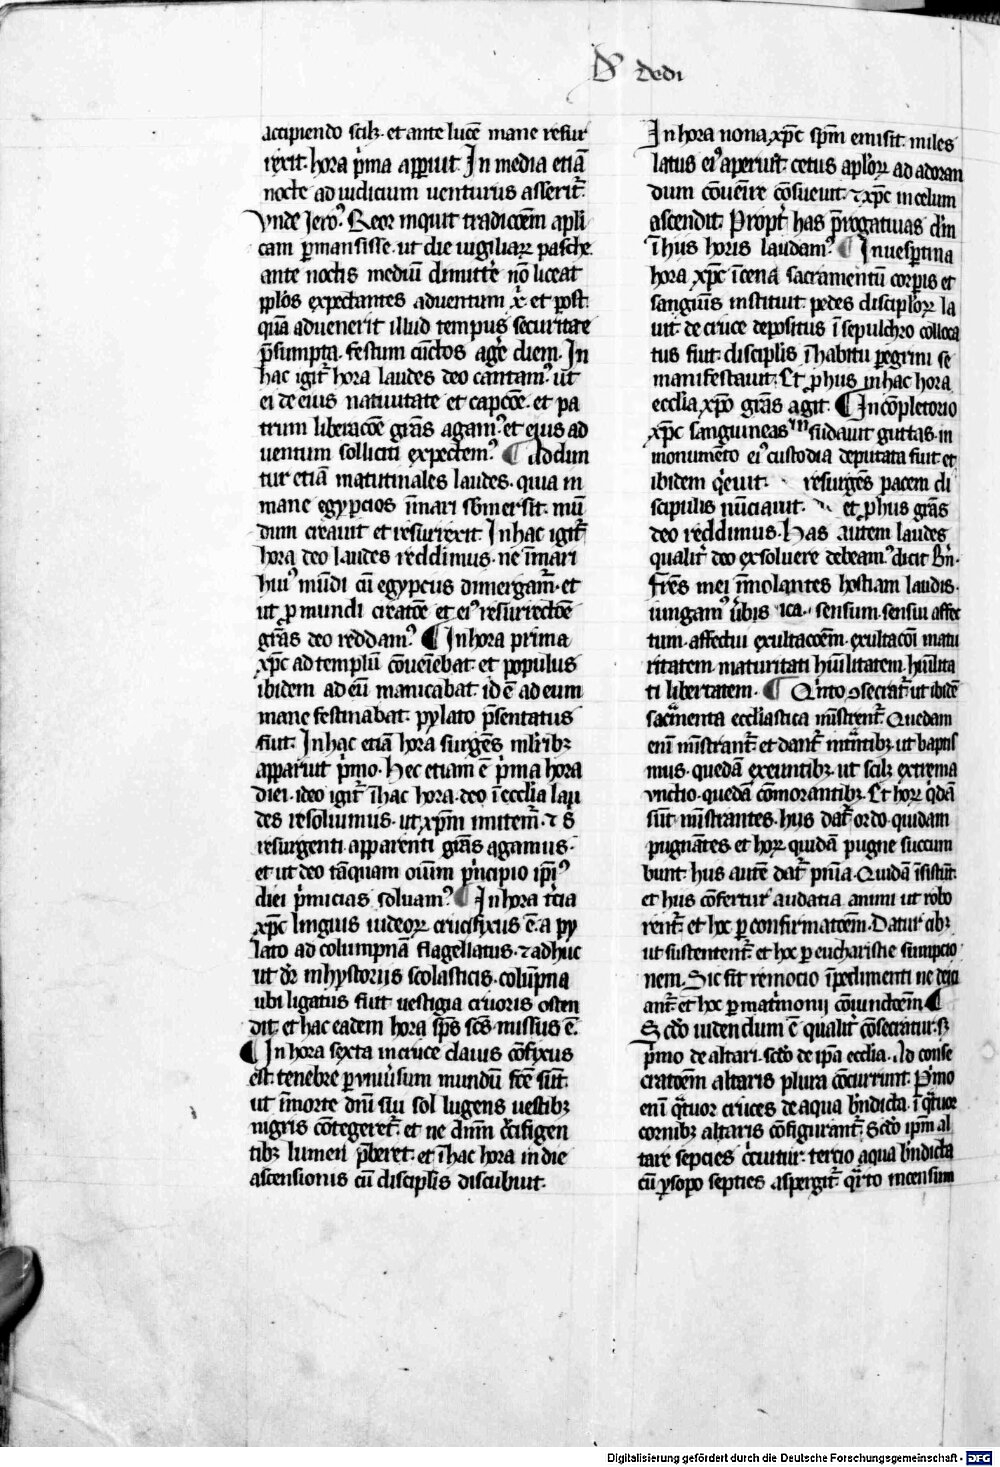 De dedi
accipiendo scilz. et ante lucē mane resur
rexit. hora p̄ma apparuit. In media etiā
nocte ad iudicium uenturus asserit᷑.
Vnde Jero᷒. Reor inquit tradicōem apli
cam ꝑmansisse. ut die uigiliaꝝ pasche
ante noctis mediū dimitt̄e nō liceat
pplōs expectantes aduentum x̄ᵢ et post
quā aduenerit illud tempus securitate
p̄sumpta. festum cūctos agē diem. In
hac igit᷑ hora laudes deo cantam᷒. ut
ei de eius natiuitate et capcōe. et pa
trum liberacōe gr̄as agam᷒. et eius ad
uentum solliciti expectem᷒. ¶ Addun
tur etiā matutinales laudes. quia in
mane egypcios ī mari sb̄mersit. mū
dum creauit et resurrexit. In hac igit᷑
hora deo laudes reddimus. ne ī mari
hui᷒ mūdi cū egypciis dimergam᷑. et
ut ꝓ mundi creatōe et ei᷒ resurrectōe
gr̄as deo reddam᷒. ¶ In hora prima
xp̄c ad templū cōueniebat. et populus
ibidem ad eū manicabat. id ē ad eum
mane festinabat. pylato p̄sentatus
fuit. In hac etiam hora surgēs mlr̄ibꝫ
apparuit p̄mo. Hec etiam ē p̄ma hora
diei. ideo igit᷑ ī hac hora. deo ī ecclīa lau
des resoluimus. ut xp̄m imitem᷑. ⁊ s̄
resurgenti apparenti gr̄as agamus.
et ut deo tāquam oīum p̄ncipio ip̄i᷒
diei p̄micias soluam᷒. ¶ In hora t̄cia
xp̄c linguis iudeoꝝ crucifixus ē. a py
lato ad columpnā flagellatus. ⁊ adhuc
ut dr̄ in hystoriis scolasticis. colūpna
ubi ligatus fuit uestigia cruoris osten
dit. et hac eadem hora sp̄s sc̄s missus ē.
¶ In hora sexta in cruce clauis cōfixus
est. tenebre ꝑ vniūsum mundū fc̄e sūt.
ut ī morte dn̄i sui sol lugens uestibꝫ
nigris cōtegeret᷑. et ne dn̄m cr̄cifigen
tibꝫ lumen p̄beret. et ī hac hora in die
ascensionis cū discipl̄is discubuit.
In hora nona. xp̄c sp̄m emisit. miles
latus ei᷒ aperuit. cetus apl̄oꝝ ad adoran
dum cōueīre cōsueuit. ⁊ xp̄c in celum
ascendit. Propt̄ has p̄rogatiuas dn̄m
īhus horis laudam᷒. ¶ In uesp̄tina
hora xp̄c ī cena sacramentū corpis et
sanguīs instituit. pedes disciploꝝ la
uit. de cruce depositus ī sepulchro colloca
tus fuit. discipl̄is ī habitu peregrini se
manifestauit. Et ꝓ hiis in hac hora
ecclīa xp̄o gr̄as agit. ¶ In cōpletorio
xp̄c sanguineas sudauit guttas. in
monumēto ei᷒ custodia deputata fuit et
ibidem q̄euit. resurgēs pacem di
scipulis nūciauit. et ꝓ hiis gr̄as
deo reddimus. Has autem laudes
qualit᷑ deo exsoluere debeam᷒ dicit Bn̄.
Frēs mei īmolantes hostiam laudis.
iungam᷒ ūbis sensum. sensui affec
tum. affectui exultacōem. exultacōi matu
ritatem. maturitati hūilitatem. hūilita
ti libertatem. ¶ Q̄nto ꝯsecrat᷑ ut ibidē
sacramenta ecclīastica mīstrent᷑. Quedam
enī mīstrant᷑ et dant᷑ intrantibꝫ. ut baptis
mus. quedā exeuntibꝫ. ut scilꝫ extrema
vnctio. quedā cōmorantibꝫ. Et hoꝝ q̄dā
sūt mīstrantes. hiis dat᷑ ordo. quidam
pugnātes. et hoꝝ quidā pugne succum
bunt. hiis autē dat᷑ pn̄ia. Quidā īsistūt.
et hiis cōfertur audatia animi ut robo
rent᷑. et hoc ꝑ confirmatōem. Datur cibꝫ
ut sustentent᷑. et hoc ꝑ eucharistie sumpcio
nem. Sic fit remocio īpedimenti ne deici
ant᷑. et hoc ꝑ matrimonij cōiunctōem ¶
Scdō uidendum ē qualit᷑ cōsecratur. ⁊
p̄mo de altari. scdō de ip̄a ecclīa. Ad conse
cratōem altaris plura cōcurrunt. P̄mo
enī q̄tuor cruces de aqua bn̄dicta. ī q̄tuor
cornibꝫ altaris cōfigurant᷑. Scdō ip̄m al
tare sepcies c̄cuitur. tercio aqua bn̄dicta
cū ysopo septies aspergit᷑. q̄rto incensum
Digitalisierung gefördert durch die Deutsche Forschungsgemeinschaft - DFG